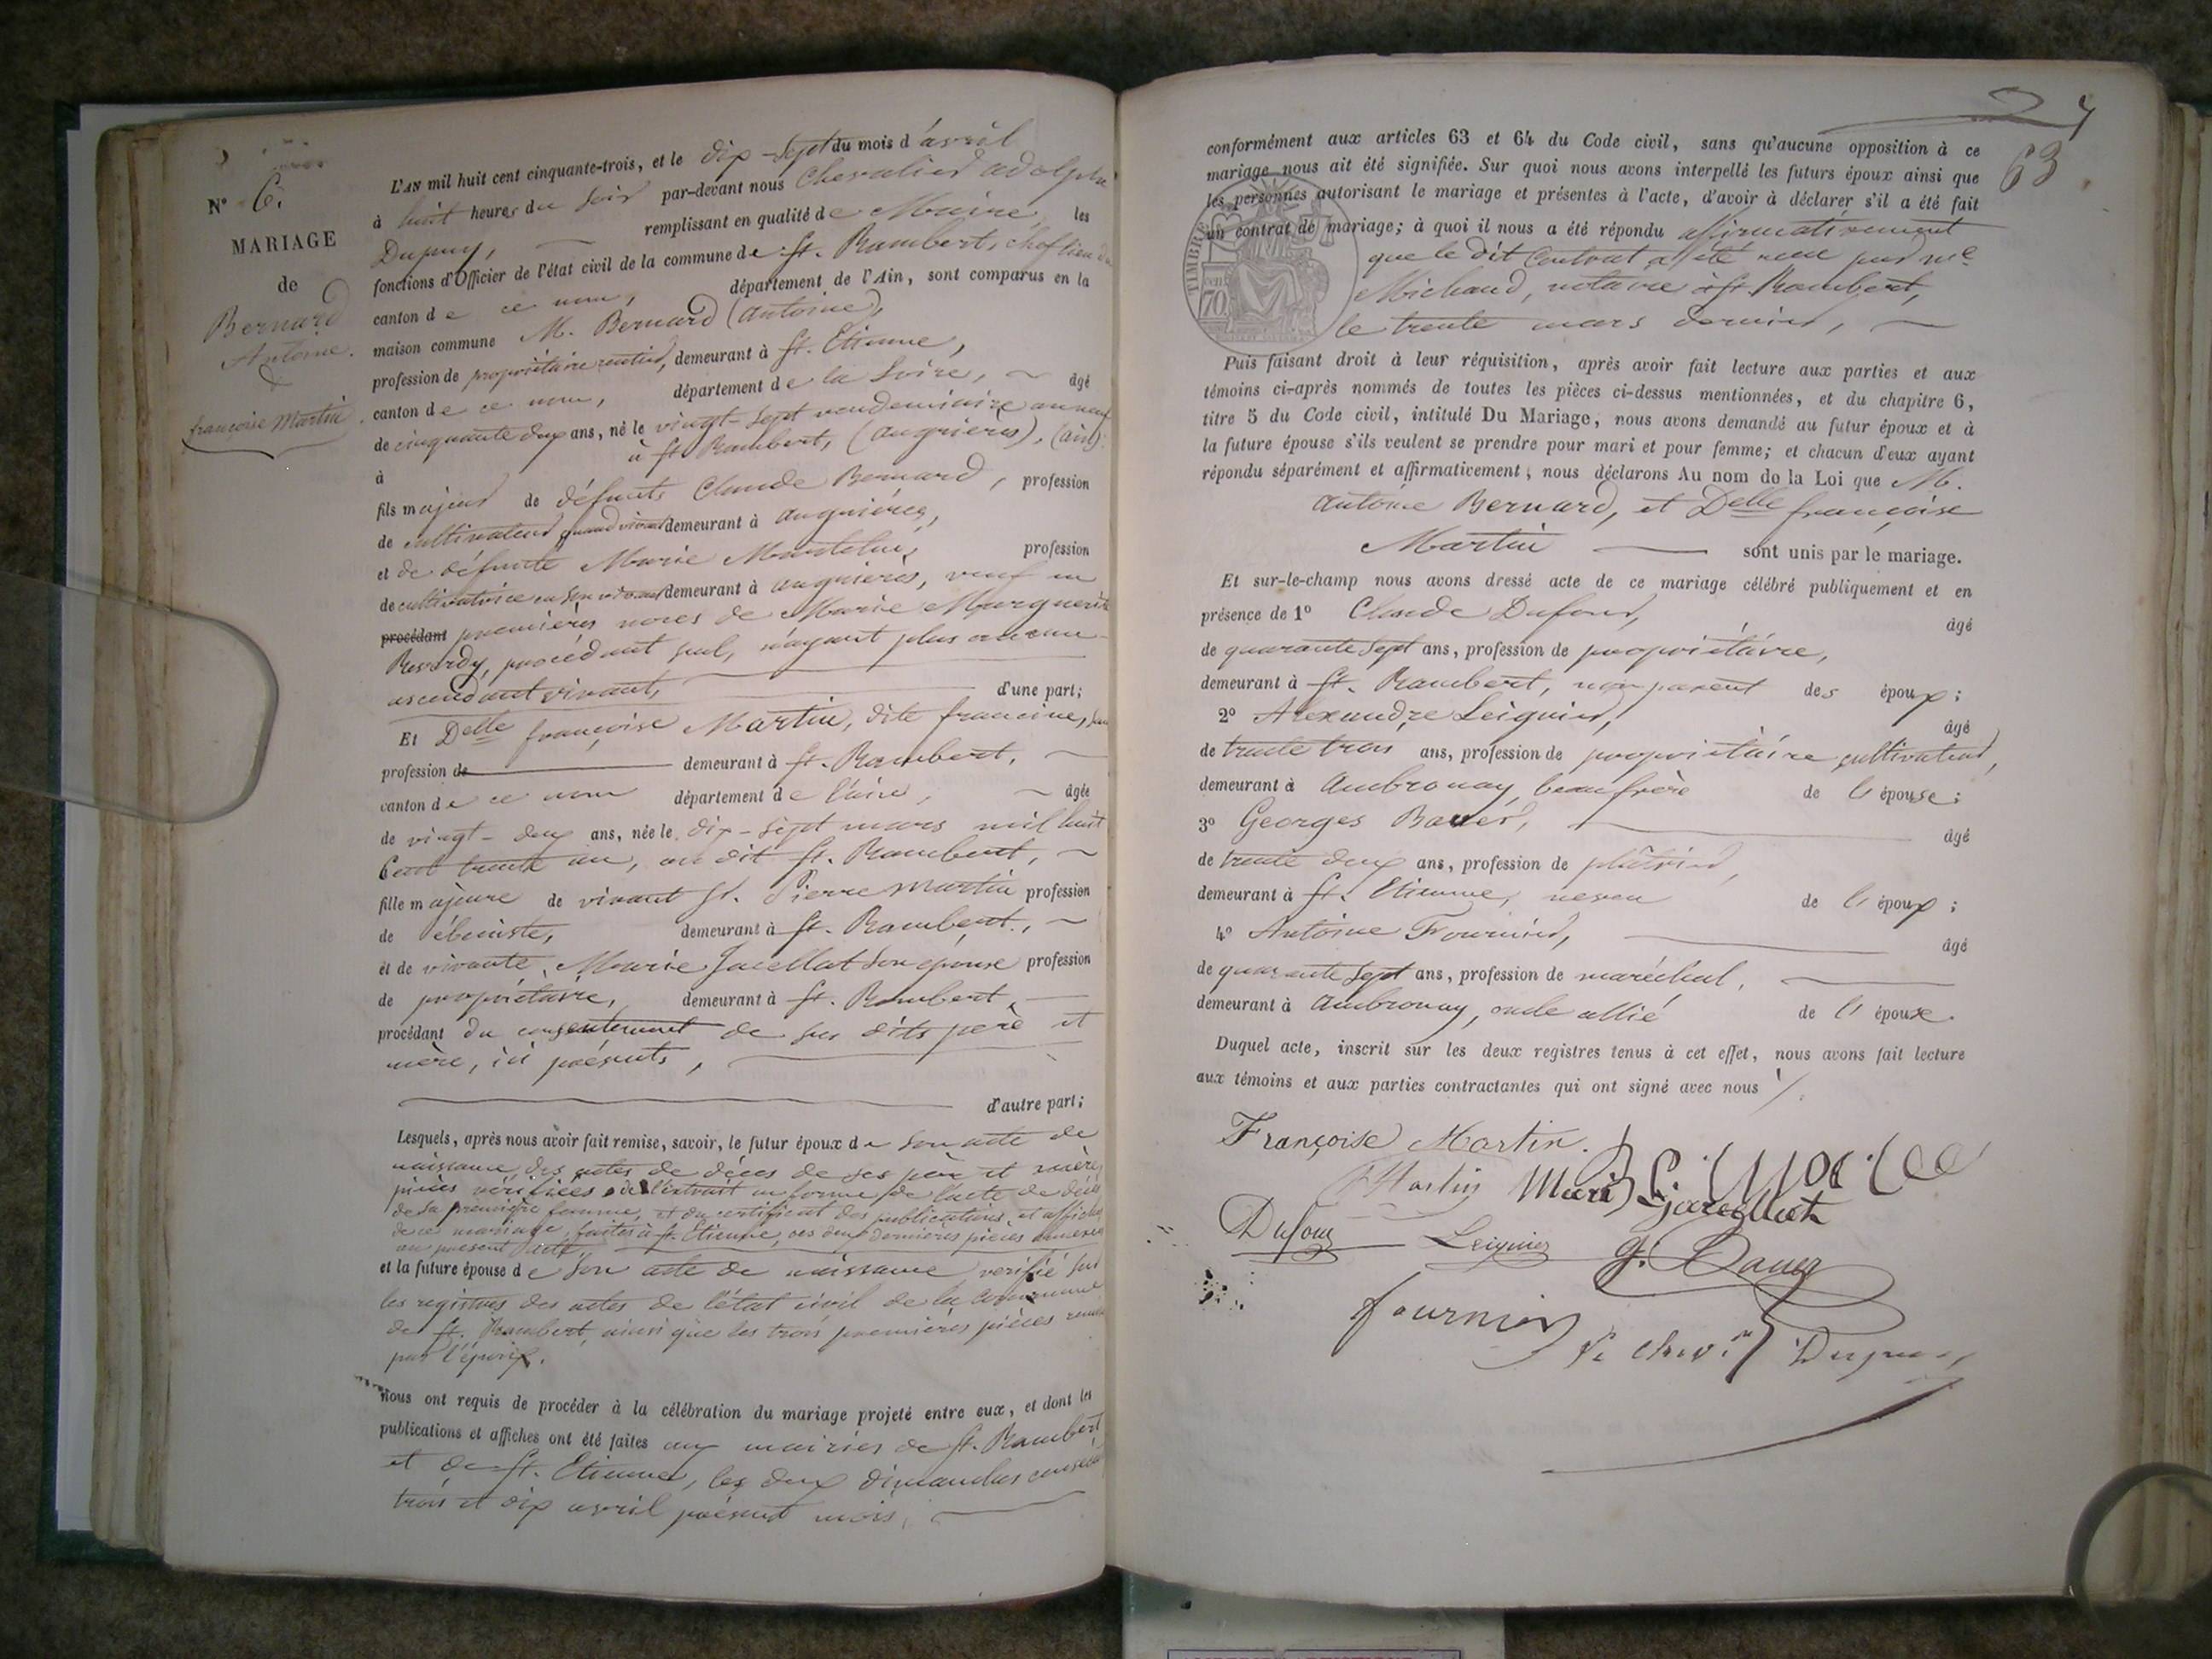 N° 6.
MARIAGE
de
Bernard
Antoine.
&
françoise Martin.
L'AN mil huit cent cinquante-trois, et le dix-sept du mois d'avril
à huit heures du soir par-devant nous Chevalier adolphe
Dupuy, remplissant en qualité de Maire, les
fonctions d'Officier de l'état civil de la commune de St. Rambert, chef lieu du
canton de ce nom, département de l'Ain, sont comparus en la
maison commune M. Bernard (antoine),
profession de propriétaire rentier, demeurant à St. Etienne,
canton de ce nom, département de la Loire, âgé
de cinquante deux ans, né le vingt-sept vendémiaire an neuf
à à St. Rambert, (angrieres), (ain);
fils majeur de défunts Claude Bernard, profession
de cultivateur quand vivait demeurant à angrières,
et de défunte Marie profession
de cultivatrice en son vivant demeurant à angrières, veuf en
procédant premières noces de Marie Marguerite
Revordy, procédant seul, n'ayant plus aucun
ascendant vivant, d'une part;
Et Delle françoise Martin, dite francine, san
profession de demeurant à St. Rambert,
canton de ce nom département de l'ain, âgée
de vingt-deux ans, née le dix-sept mars mil huit
Cent trente un, au dit St. Rambert,
fille majeure de vivant St. Pierre Martin profession
de ébeniste, demeurant à St. Rambert,
et de vivante Marie Jacellat son épouse profession
de propriétaire, demeurant à St. Rambert,
procédant du consentement de ses dits père et
mère, ici présents,
d'autre part;
Lesquels, après nous avoir fait remise, savoir, le futur époux de son acte de
naissance, des actes de décès de ses père et mère,
pièces vérifiées, de l'extrait en forme de l'acte de décès
de sa première femme, et du certificat des publications et affiches
de ce mariage, faites à St. Etienne, ces deux dernières pièces annexées
au présent acte,
et la future épouse de son acte de naissance verifié sur
les registres des actes de l'état civil de la commune
de St. Rambert, ainsi que les trois premières pièces remises
par l'époux.
nous ont requis de procéder à la célébration du mariage projeté entre eux, et dont les
publications et affiches ont été faites aux mairies de St. Rambert
et de St. Etienne, les deux dimanches
trois et dix avril présent mois,
63
conformément aux articles 63 et 64 du Code civil, sans qu'aucune opposition à ce
mariage nous ait été signifiée. Sur quoi nous avons interpellé les futurs époux ainsi que
les personnes autorisant le mariage et présentes à l'acte, d'avoir à déclarer s'il a été fait
un contrat de mariage; à quoi il nous a été répondu affirmativement
que le dit Contrat a été reçu par me
Michaud, notaire à St. Rambert,
le trente mars dernier,
TIMBRE
70
Puis faisant droit à leur réquisition, après avoir fait lecture aux parties et aux
témoins ci-après nommés de toutes les pièces ci-dessus mentionnées, et du chapitre 6,
titre 5 du Code civil, intitulé Du Mariage, nous avons demandé au futur époux et à
la future épouse s'ils veulent se prendre pour mari et pour femme; et chacun d'eux ayant
répondu séparément et affirmativement, nous déclarons Au nom de la Loi que M.
antoine Bernard, et Delle françoise
Martin sont unis par le mariage.
Et sur-le-champ nous avons dressé acte de ce mariage célébré publiquement et en
présence de 1° Claude Dufour, âgé
de quarante sept ans, profession de propriétaire,
demeurant à St. Rambert, non parent des époux;
2° Alexandre Leignier, âgé
de trente trois ans, profession de propriétaire cultivateur,
demeurant à Ambronay, beau frère de l'épouse;
3° Georges Bauer, âgé
de trente deux ans, profession de plâtrier,
demeurant à St. Etienne, neveu de l'époux;
4° Antoine Fournier, âgé
de quarante sept ans, profession de maréchal,
demeurant à Ambronay, oncle allié de l'épouse.
Duquel acte, inscrit sur les deux registres tenus à cet effet, nous avons fait lecture
aux témoins et aux parties contractantes qui ont signé avec nous
Françoise Martin.
P Martin Marie
Dufour Leignier G. Bauer
fournier
Dupuy